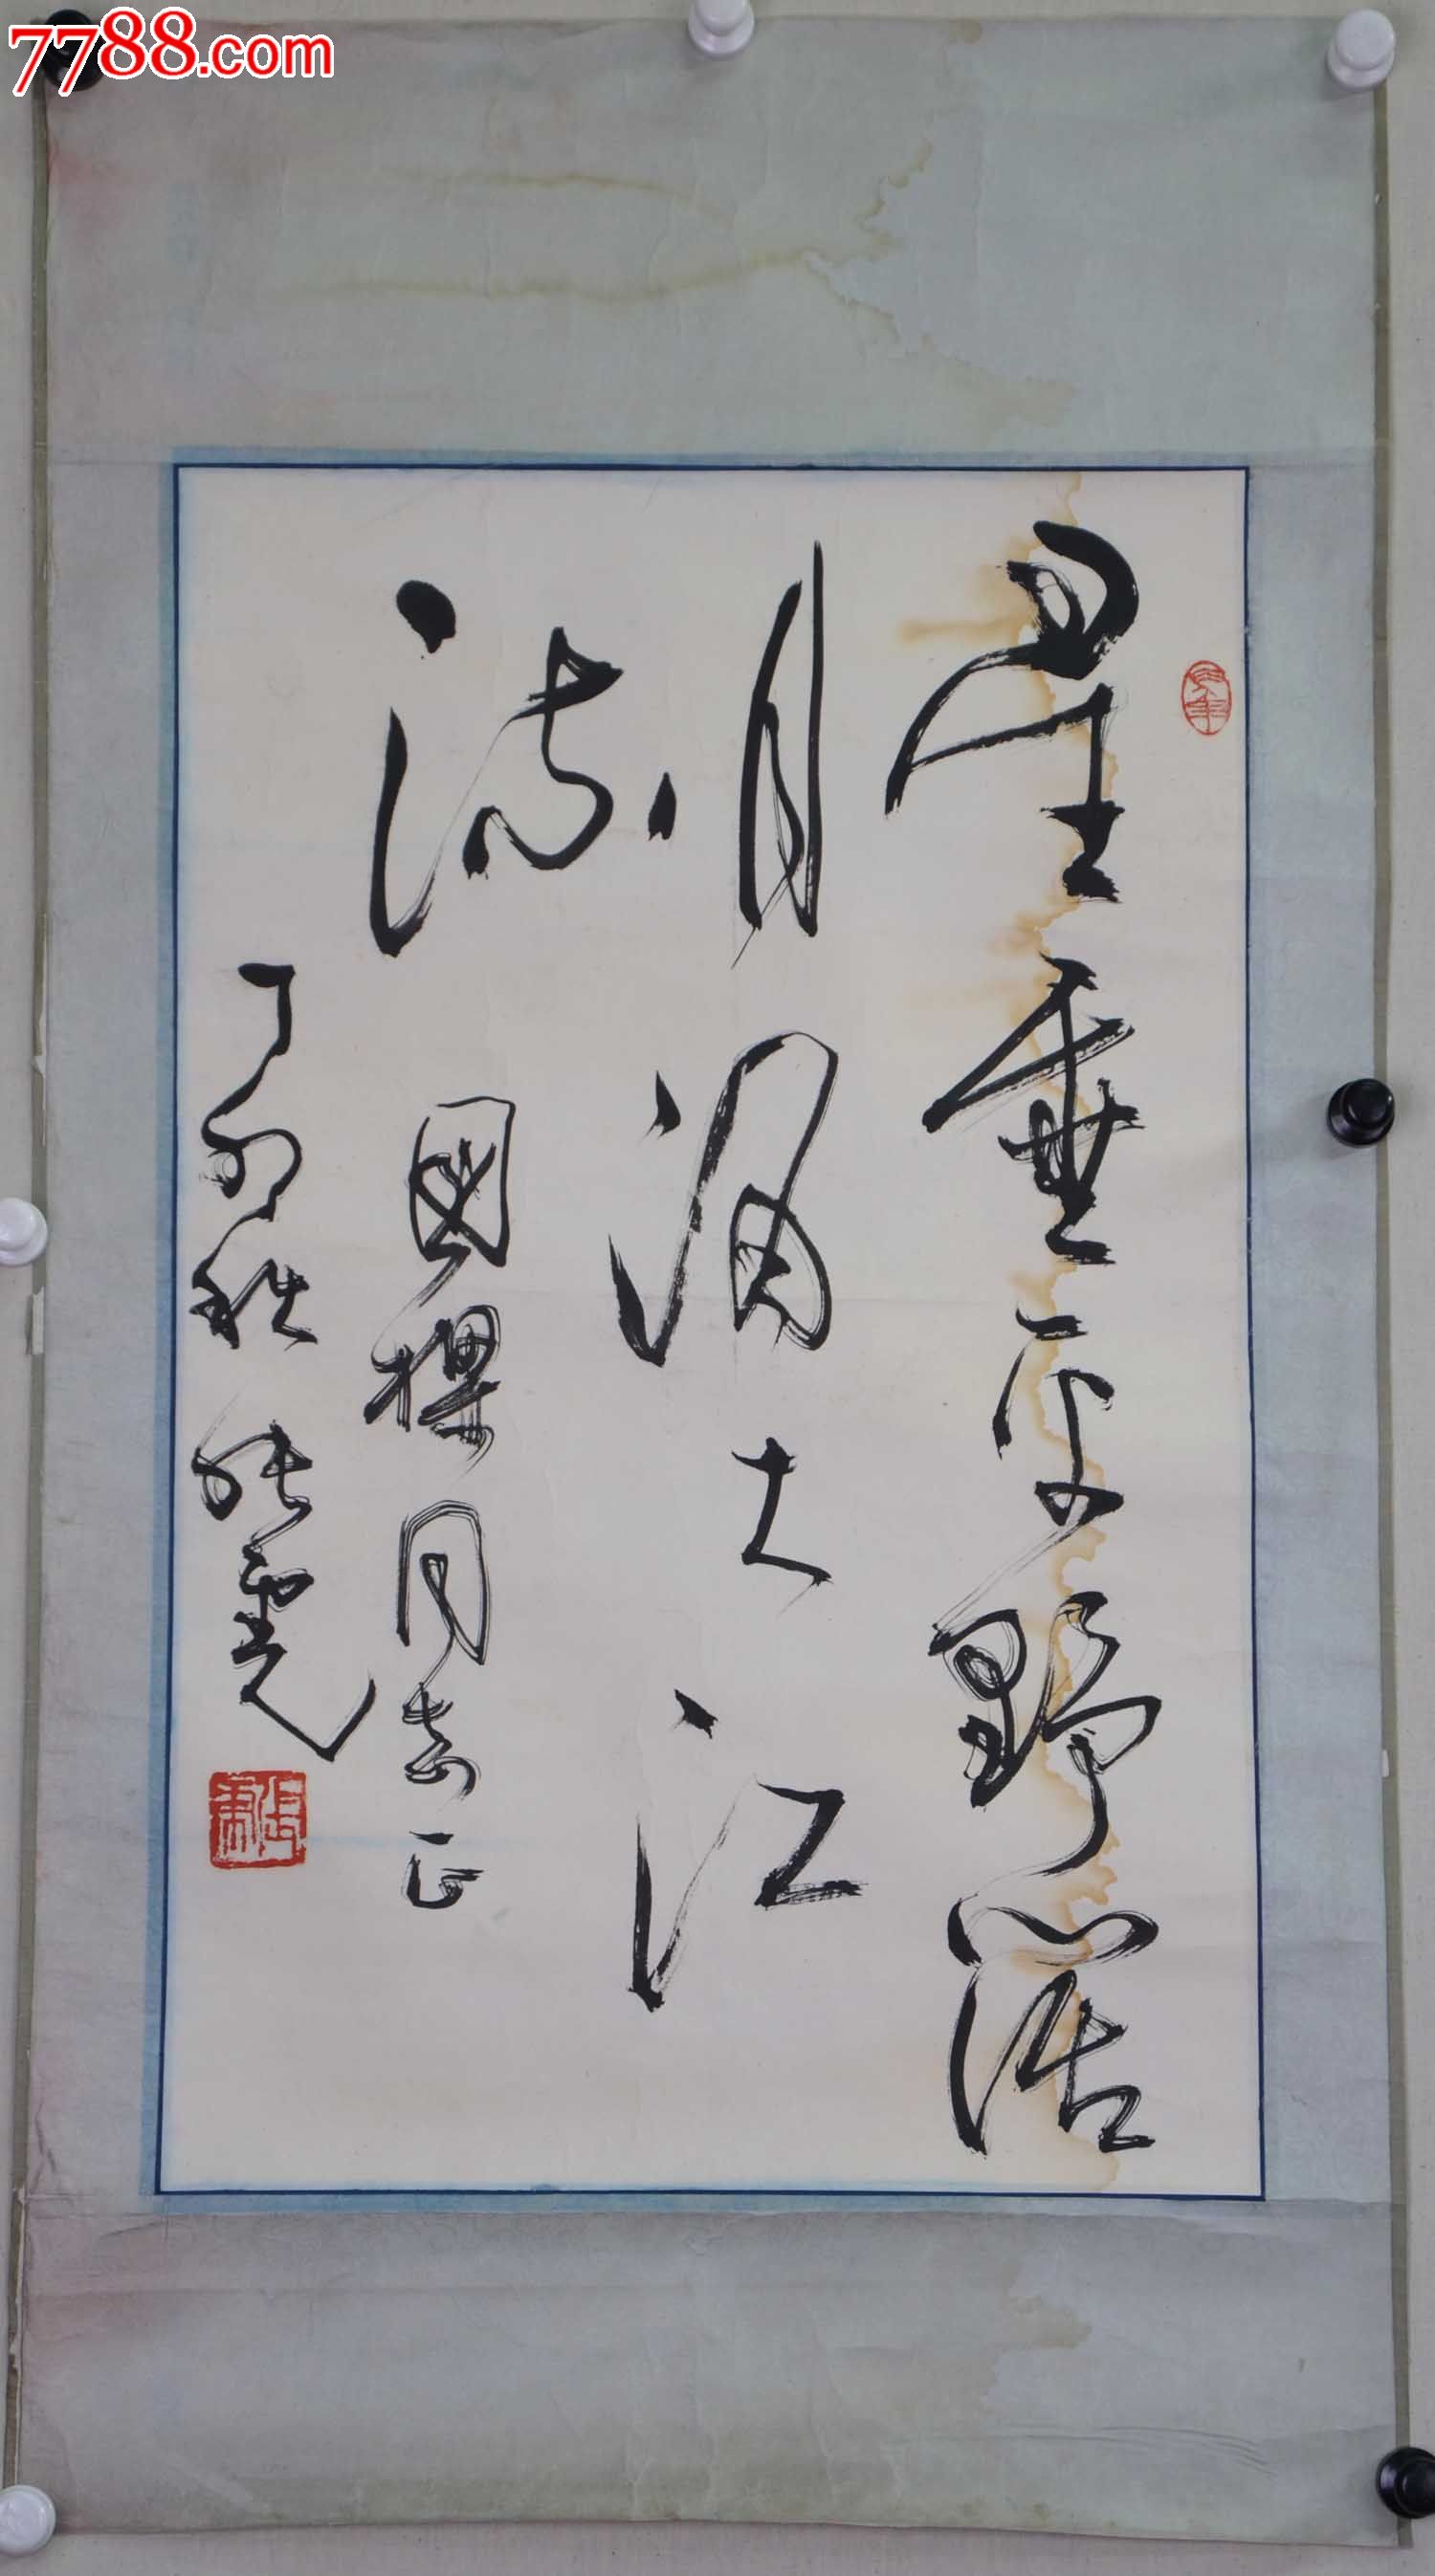 7788.com
星垂平野濶
月涌大江
流
國樑同志正
丁卯秋